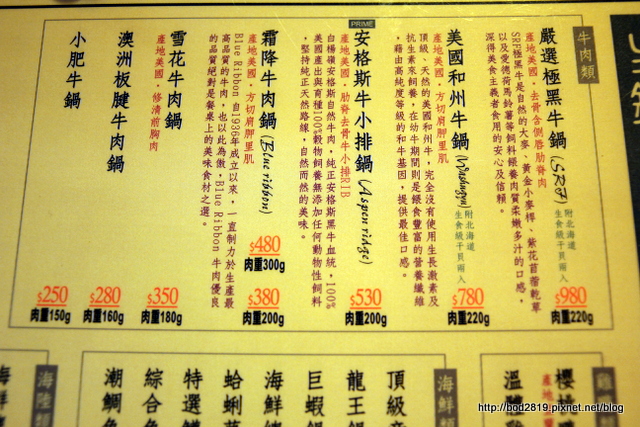 牛肉類
嚴選極黑牛鍋(SRF)
附北海道
生食級干貝兩入
產地美國‧去骨含側唇肋脊肉
SRF極黑牛是自然的大麥、黃金小麥桿、紫花苜蓿乾草
以及愛德荷馬鈴薯等飼料餵養肉質柔嫩多汁的口感,
深得美食主義者食用的安心及信賴。
$980
肉重220g
美國和州牛鍋(Washugyu)
附北海道
生食級干貝兩入
產地美國‧方切肩胛里肌
頂級、天然的美國和州牛,完全沒有使用生長激素及
抗生素來飼養,在幼牛期間則是餵食豐富的營養纖維
,藉由高純度等級的和牛基因,提供最佳口感。
$780
肉重220g
PRIME
安格斯牛小排鍋(Aspen ridge)
產地美國‧肋脊去骨牛小排RIB
白楊嶺安格斯自然牛肉,純正安格斯黑牛血統,100%
美國產出與育種100%穀物飼養無添加任何動物性飼料
,堅持純正天然路線,自然而然的美味。
$530
肉重200g
霜降牛肉鍋(Blue ribbon)
產地美國‧方切肩胛里肌
Blue Ribbon 自1936年成立以來,一直制力於生產最
高品質的牛肉,也以此為傲,Blue Ribbon 牛肉優良
的品質絕對是餐桌上的美味食材之選。
$480
肉重300g
$380
肉重200g
雪花牛肉鍋
產地美國‧修清前胸肉
$350
肉重180g
澳洲板腱牛肉鍋
$280
肉重160g
小肥牛鍋
$250
肉重150g
雞
櫻桃
產地
溫體
海鮮類
頂級
龍王鍋
巨蝦鍋
海鮮
蛤蜊
特選
綜合魚
潮鯛魚
海陸類
海鮮
http://bod2819.pixnet.net/blog